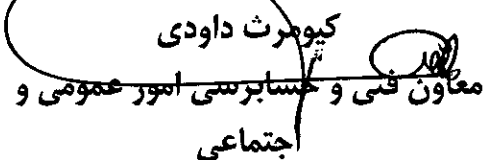 کیومرث داودی
معاون فنی و حسابرسی امور عمومی و
اجتماعی